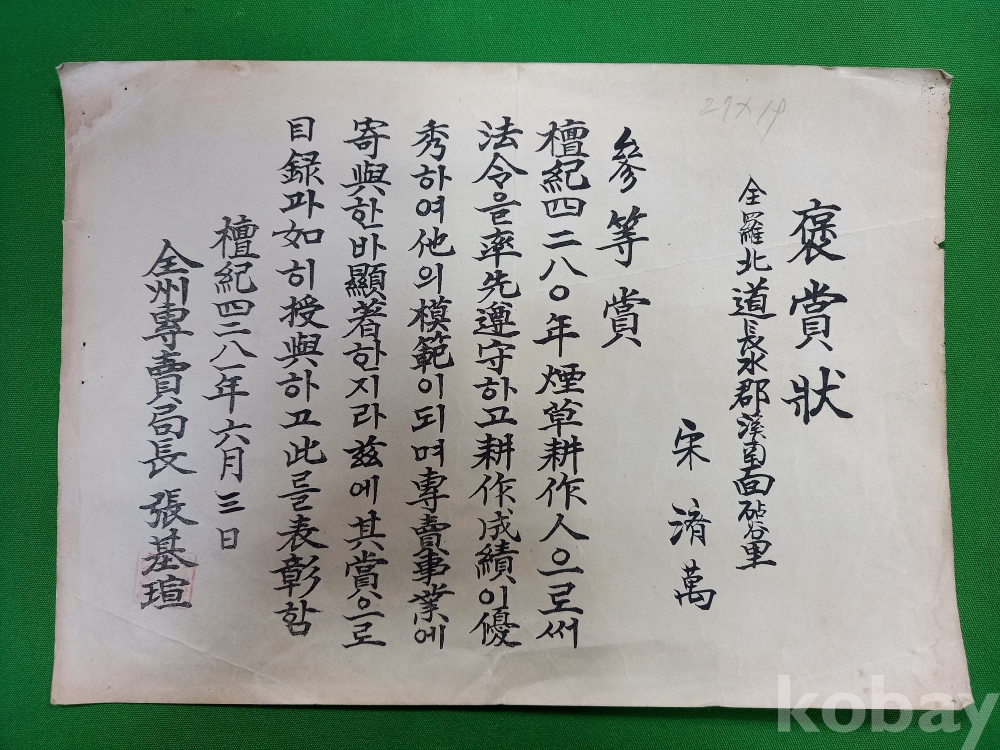 褒賞狀
全羅北道長水郡溪南面砧谷里
宋濟萬
參等賞
檀紀四二八〇年煙草耕作人으로써
法令을率先遵守하고耕作成績이優
秀하여他의模範이되며專賣事業에
寄與한바顯著한지라玆에其賞으로
目録과如히授與하고此를表彰함
檀紀四二八一年六月三日
全州專賣局長 張基瑄
27×19
kobay